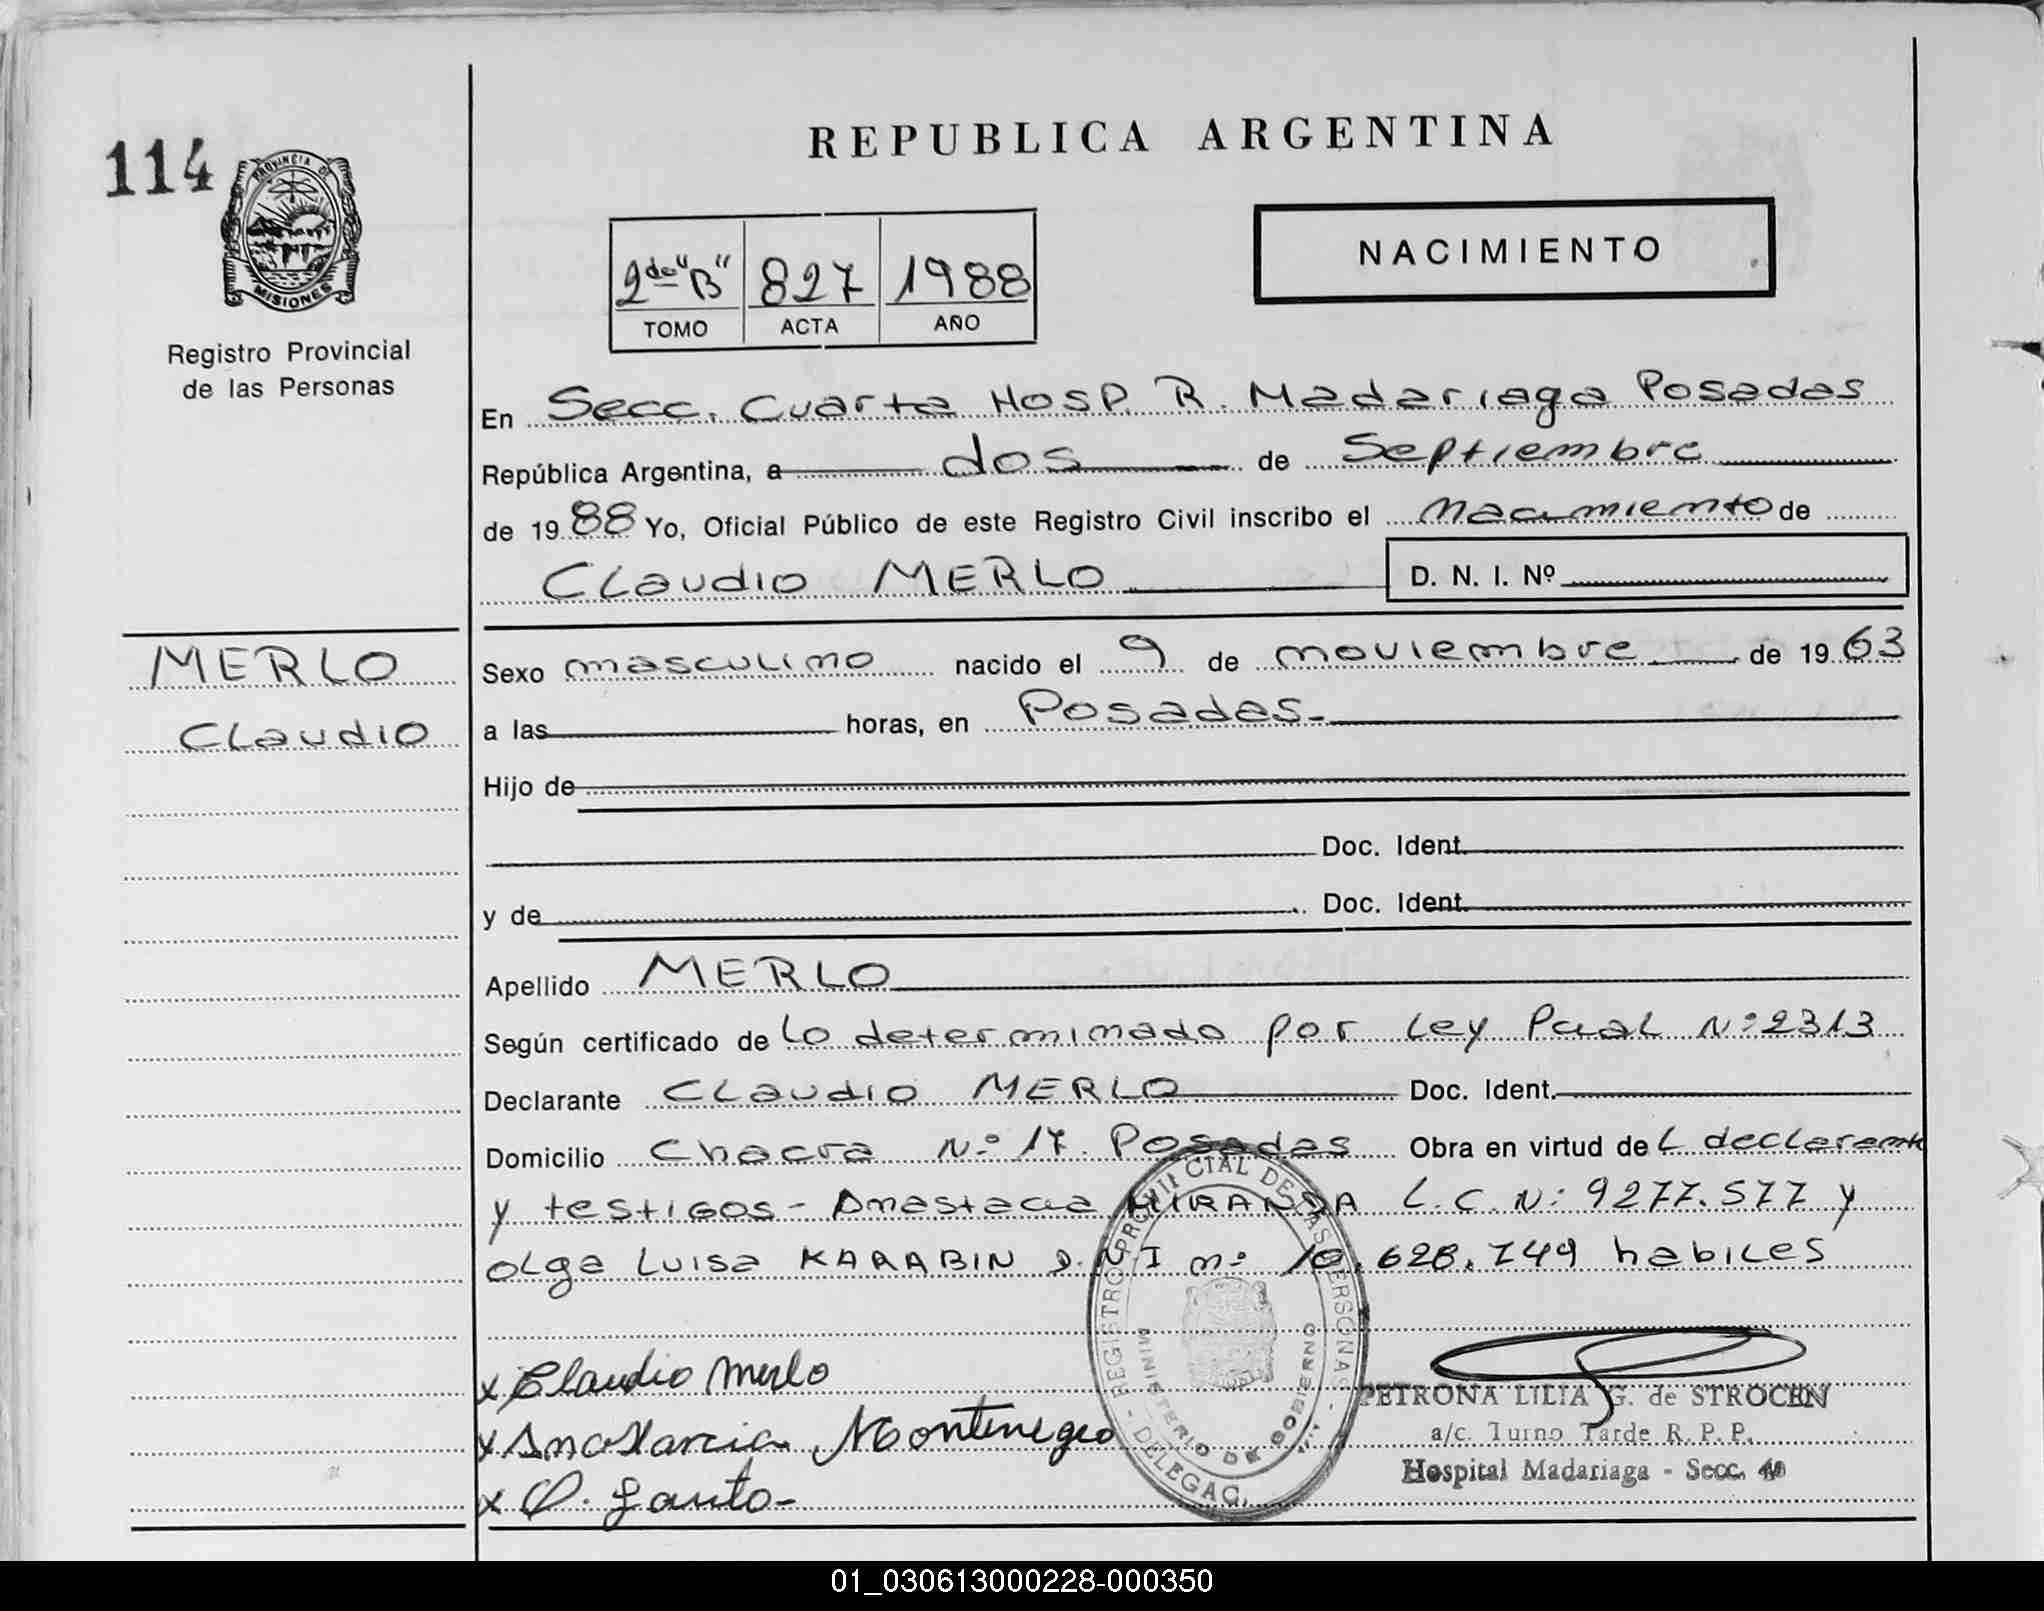 114
PROVINCIA DE
MISIONES
Registro Provincial
de las Personas
REPUBLICA ARGENTINA
2do "B" 827 1988
TOMO ACTA AÑO
NACIMIENTO
En Secc. Cuarta Hosp. R. Madariaga Posadas
República Argentina, a dos de Septiembre
de 1988 Yo, Oficial Público de este Registro Civil inscribo el nacimiento de
Claudio MERLO D. N. I. Nº
MERLO
Claudio
Sexo masculino nacido el 9 de noviembre de 1963
a las horas, en Posadas.
Hijo de
Doc. Ident.
y de Doc. Ident.
Apellido MERLO
Según certificado de lo determinado por Ley Pcial Nº 2313
Declarante Claudio MERLO Doc. Ident.
Domicilio Chacra Nº 17. Posadas Obra en virtud del declarante
y testigos - Anastacia MIRANDA L.C. Nº 9277.577 y
Olga Luisa KARABIN D.N.I nº 10.628.749 habiles
x Claudio Merlo
x Montenegro
x
REGISTRO PROVINCIAL DE LAS PERSONAS - DELEGAC.
MINISTERIO DE GOBIERNO
PETRONA LILIA G. de STROCEN
a/c. Turno Tarde R. P. P.
Hospital Madariaga - Secc.
01_030613000228-000350